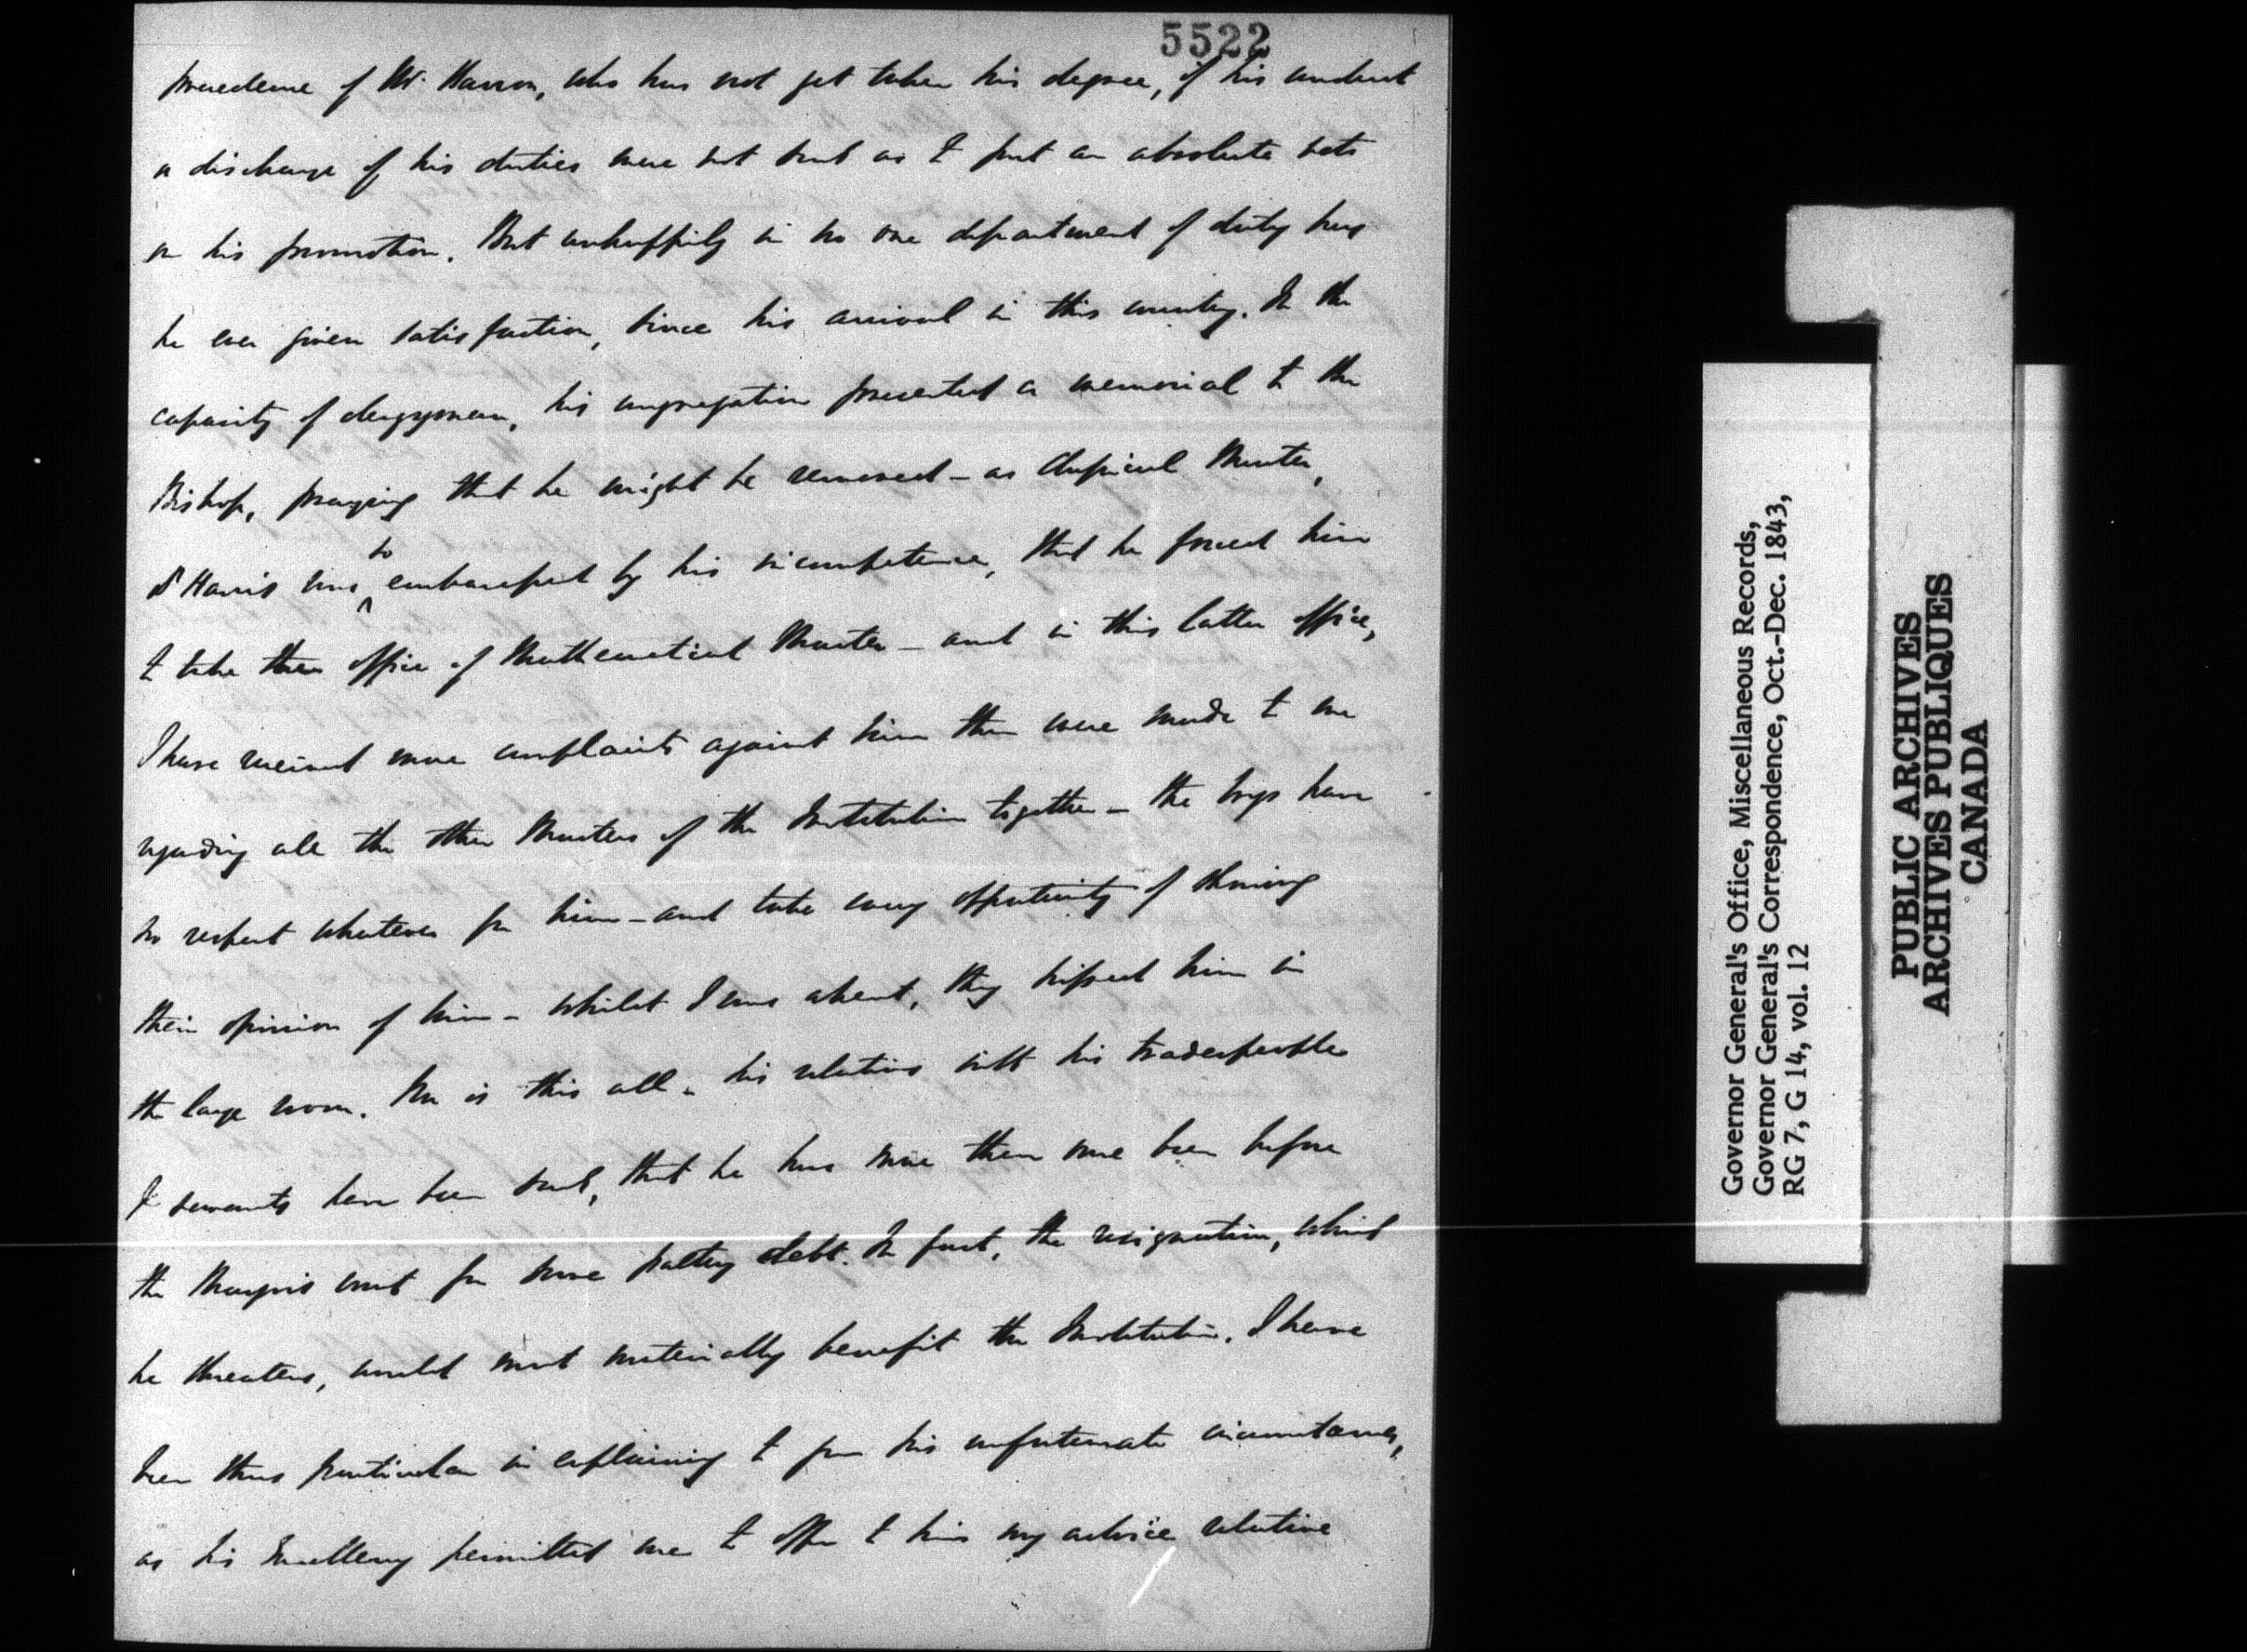 5522
precedence of Mr. Barron, who has not yet taken his degree, if his conduct
& discharge of his duties were not such as to put an absolute veto
on his promotion. But unhappily in no one department of duty has
he ever given satisfaction, since his arrival in this country. In the
capacity of clergyman, his congregation presented a memorial to the
Bishop, praying that he might be removed – as Classical Master,
Dr Harris was so embarassed by his incompetence, that he forced him
to take the office of Mathematical Master – and in this latter office,
I have received more complaints against him than were made to me
regarding all the other Masters of the Institution together – the boys have
no respect whatever for him – and take every opportunity of shewing
their opinion of him – whilst I was absent, they hissed him in
the large room. Nor is this all – his relations with his tradespeople
& servants have been such, that he has more than once been before
the Mayor's court for some paltry debt. In fact, the resignation, which
he threatens, would most materially benefit the Institution. I have
been thus particular in explaining to you his unfortunate circumstances,
as his Excellency permitted me to offer to him my advice relative
Governor General's Office, Miscellaneous Records,
Governor General's Correspondence, Oct.-Dec. 1843,
RG 7, G 14, vol. 12
PUBLIC ARCHIVES
ARCHIVES PUBLIQUES
CANADA